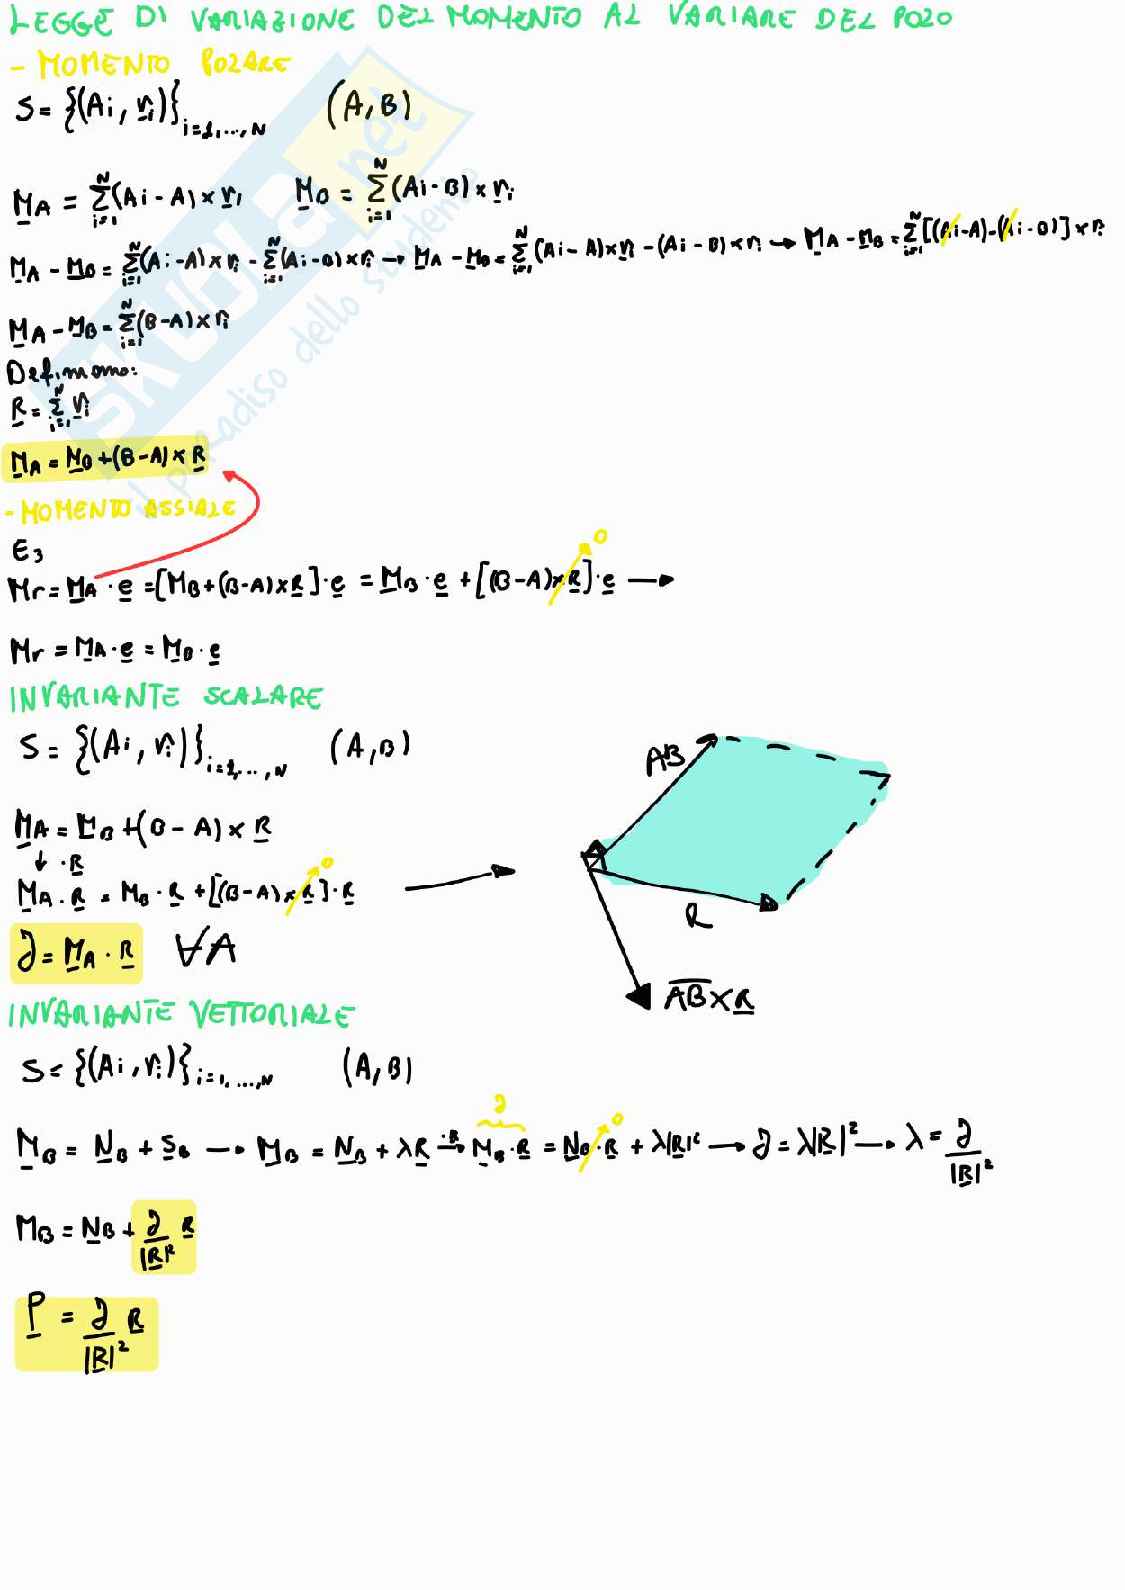 LEGGE DI VARIAZIONE DEL MOMENTO AL VARIARE DEL POLO
- MOMENTO POLARE
S = {(Ai, vi)} i=1,...,N (A, B)
MA = Σ_{i=1}^{N} (Ai - A) × vi MB = Σ_{i=1}^{N} (Ai - B) × vi
MA - MB = Σ_{i=1}^{N} (Ai - A) × vi - Σ_{i=1}^{N} (Ai - B) × vi → MA - MB = Σ_{i=1}^{N} (Ai - A) × vi - (Ai - B) × vi → MA - MB = Σ_{i=1}^{N} [(Ai - A) - (Ai - B)] × vi
MA - MB = Σ_{i=1}^{N} (B - A) × vi
Definiamo:
R = Σ_{i=1}^{N} vi
MA = MB + (B - A) × R
- MOMENTO ASSIALE
E3
Mr = MA · e = [MB + (B - A) × R] · e = MB · e + [(B - A) × R] · e → 0
Mr = MA · e = MB · e
INVARIANTE SCALARE
S = {(Ai, vi)} i=1,...,N (A, B)
MA = MB + (B - A) × R
↓ · R
MA · R = MB · R + [(B - A) × R] · R → 0
AB
R
AB × R
J = MA · R ∀A
INVARIANTE VETTORIALE
S = {(Ai, vi)} i=1,...,N (A, B)
MB = NB + SB → MB = NB + λR →·R MB · R = NB · R + λ|R|² → J = λ|R|² → λ = J/|R|²
J 0
MB = NB + J/|R|² R
P = J/|R|² R
SKUOLA.net
il paradiso dello studente